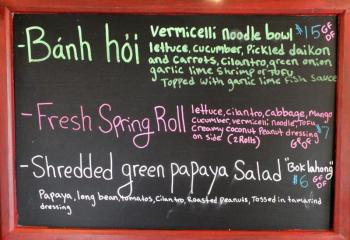 -Bánh hỏi vermicelli noodle bowl $15 GF DF
lettuce, cucumber, Pickled daikon
and carrots, cilantro, green onion
garlic lime shrimp or TOFU
Topped with garlic lime fish sauce
-Fresh Spring Roll lettuce, cilantro, cabbage, mango
cucumber, vermicelli noodle, TOFU,
creamy coconut Peanut dressing $7
on side (2 Rolls) GF DF
-Shredded green papaya Salad "Bok lahong"
$6 GF DF
Papaya, long bean, tomatos, Cilantro, Roasted Peanuts, Tossed in tamarind
dressing